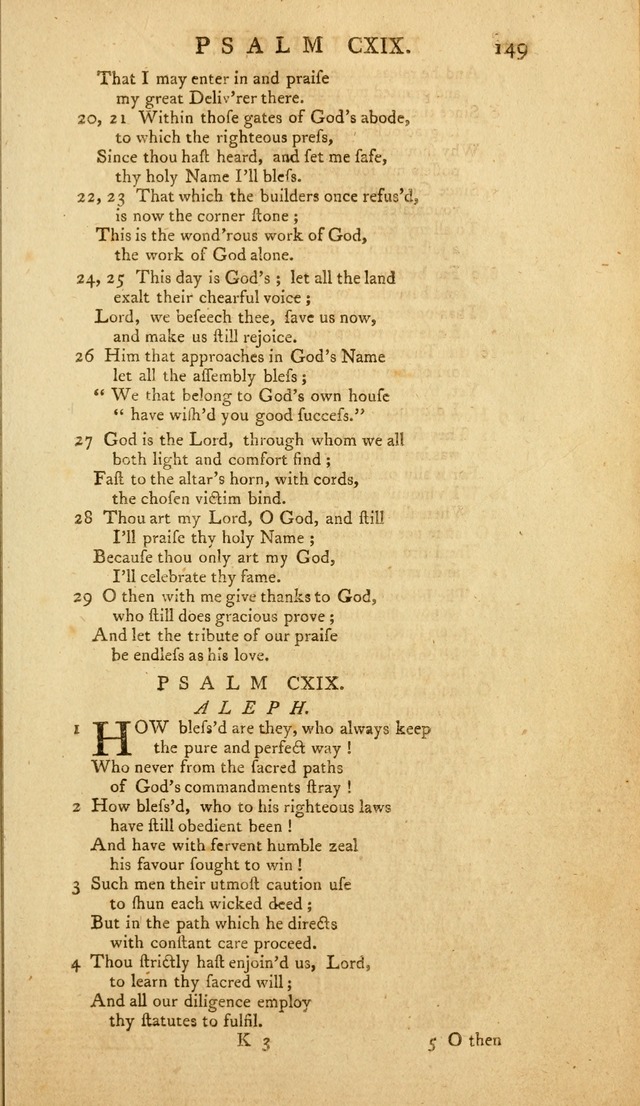 PSALM CXIX. 149
That I may enter in and praiſe
my great Deliv'rer there.
20, 21 Within thoſe gates of God's abode,
to which the righteous preſs,
Since thou haſt heard, and ſet me ſafe,
thy holy Name I'll bleſs.
22, 23 That which the builders once refus'd,
is now the corner ſtone ;
This is the wond'rous work of God,
the work of God alone.
24, 25 This day is God's ; let all the land
exalt their chearful voice ;
Lord, we beſeech thee, ſave us now,
and make us ſtill rejoice.
26 Him that approaches in God's Name
let all the aſſembly bleſs ;
“ We that belong to God's own houſe
“ have wiſh'd you good ſucceſs.”
27 God is the Lord, through whom we all
both light and comfort find ;
Faſt to the altar's horn, with cords,
the choſen victim bind.
28 Thou art my Lord, O God, and ſtill
I'll praiſe thy holy Name ;
Becauſe thou only art my God,
I'll celebrate thy fame.
29 O then with me give thanks to God,
who ſtill does gracious prove ;
And let the tribute of our praiſe
be endleſs as his love.
PSALM CXIX.
ALEPH.
1 HOW bleſs'd are they, who always keep
the pure and perfect way !
Who never from the ſacred paths
of God's commandments ſtray !
2 How bleſs'd, who to his righteous laws
have ſtill obedient been !
And have with fervent humble zeal
his favour ſought to win !
3 Such men their utmoſt caution uſe
to ſhun each wicked deed ;
But in the path which he directs
with conſtant care proceed.
4 Thou ſtrictly haſt enjoin'd us, Lord,
to learn thy ſacred will ;
And all our diligence employ
thy ſtatutes to fulfil.
K 3 5 O then